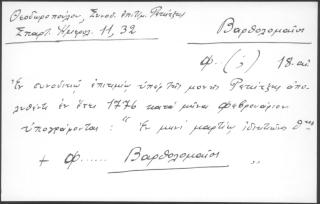 Θεοδωροπούλου, Συνοδ. ἐπιτιμ. Ρετσίτζης
Σπαρτ. Ἡμερολ. 11, 32
Βαρθολομαῖος
Φ.. (;) 18. αἰ
Ἐν συνοδικῷ ἐπιτιμίῳ ὑπὲρ τῆς μονῆς Ρετσίτζης ἀπο
λυθέντι ἐν ἔτει 1776 κατὰ μῆνα Φεβρουάριον
ὑπογράφονται: "Ἐν μηνὶ μαρτίῳ ἰνδικτιῶνος θης
+ Φ...... Βαρθολομαῖος "